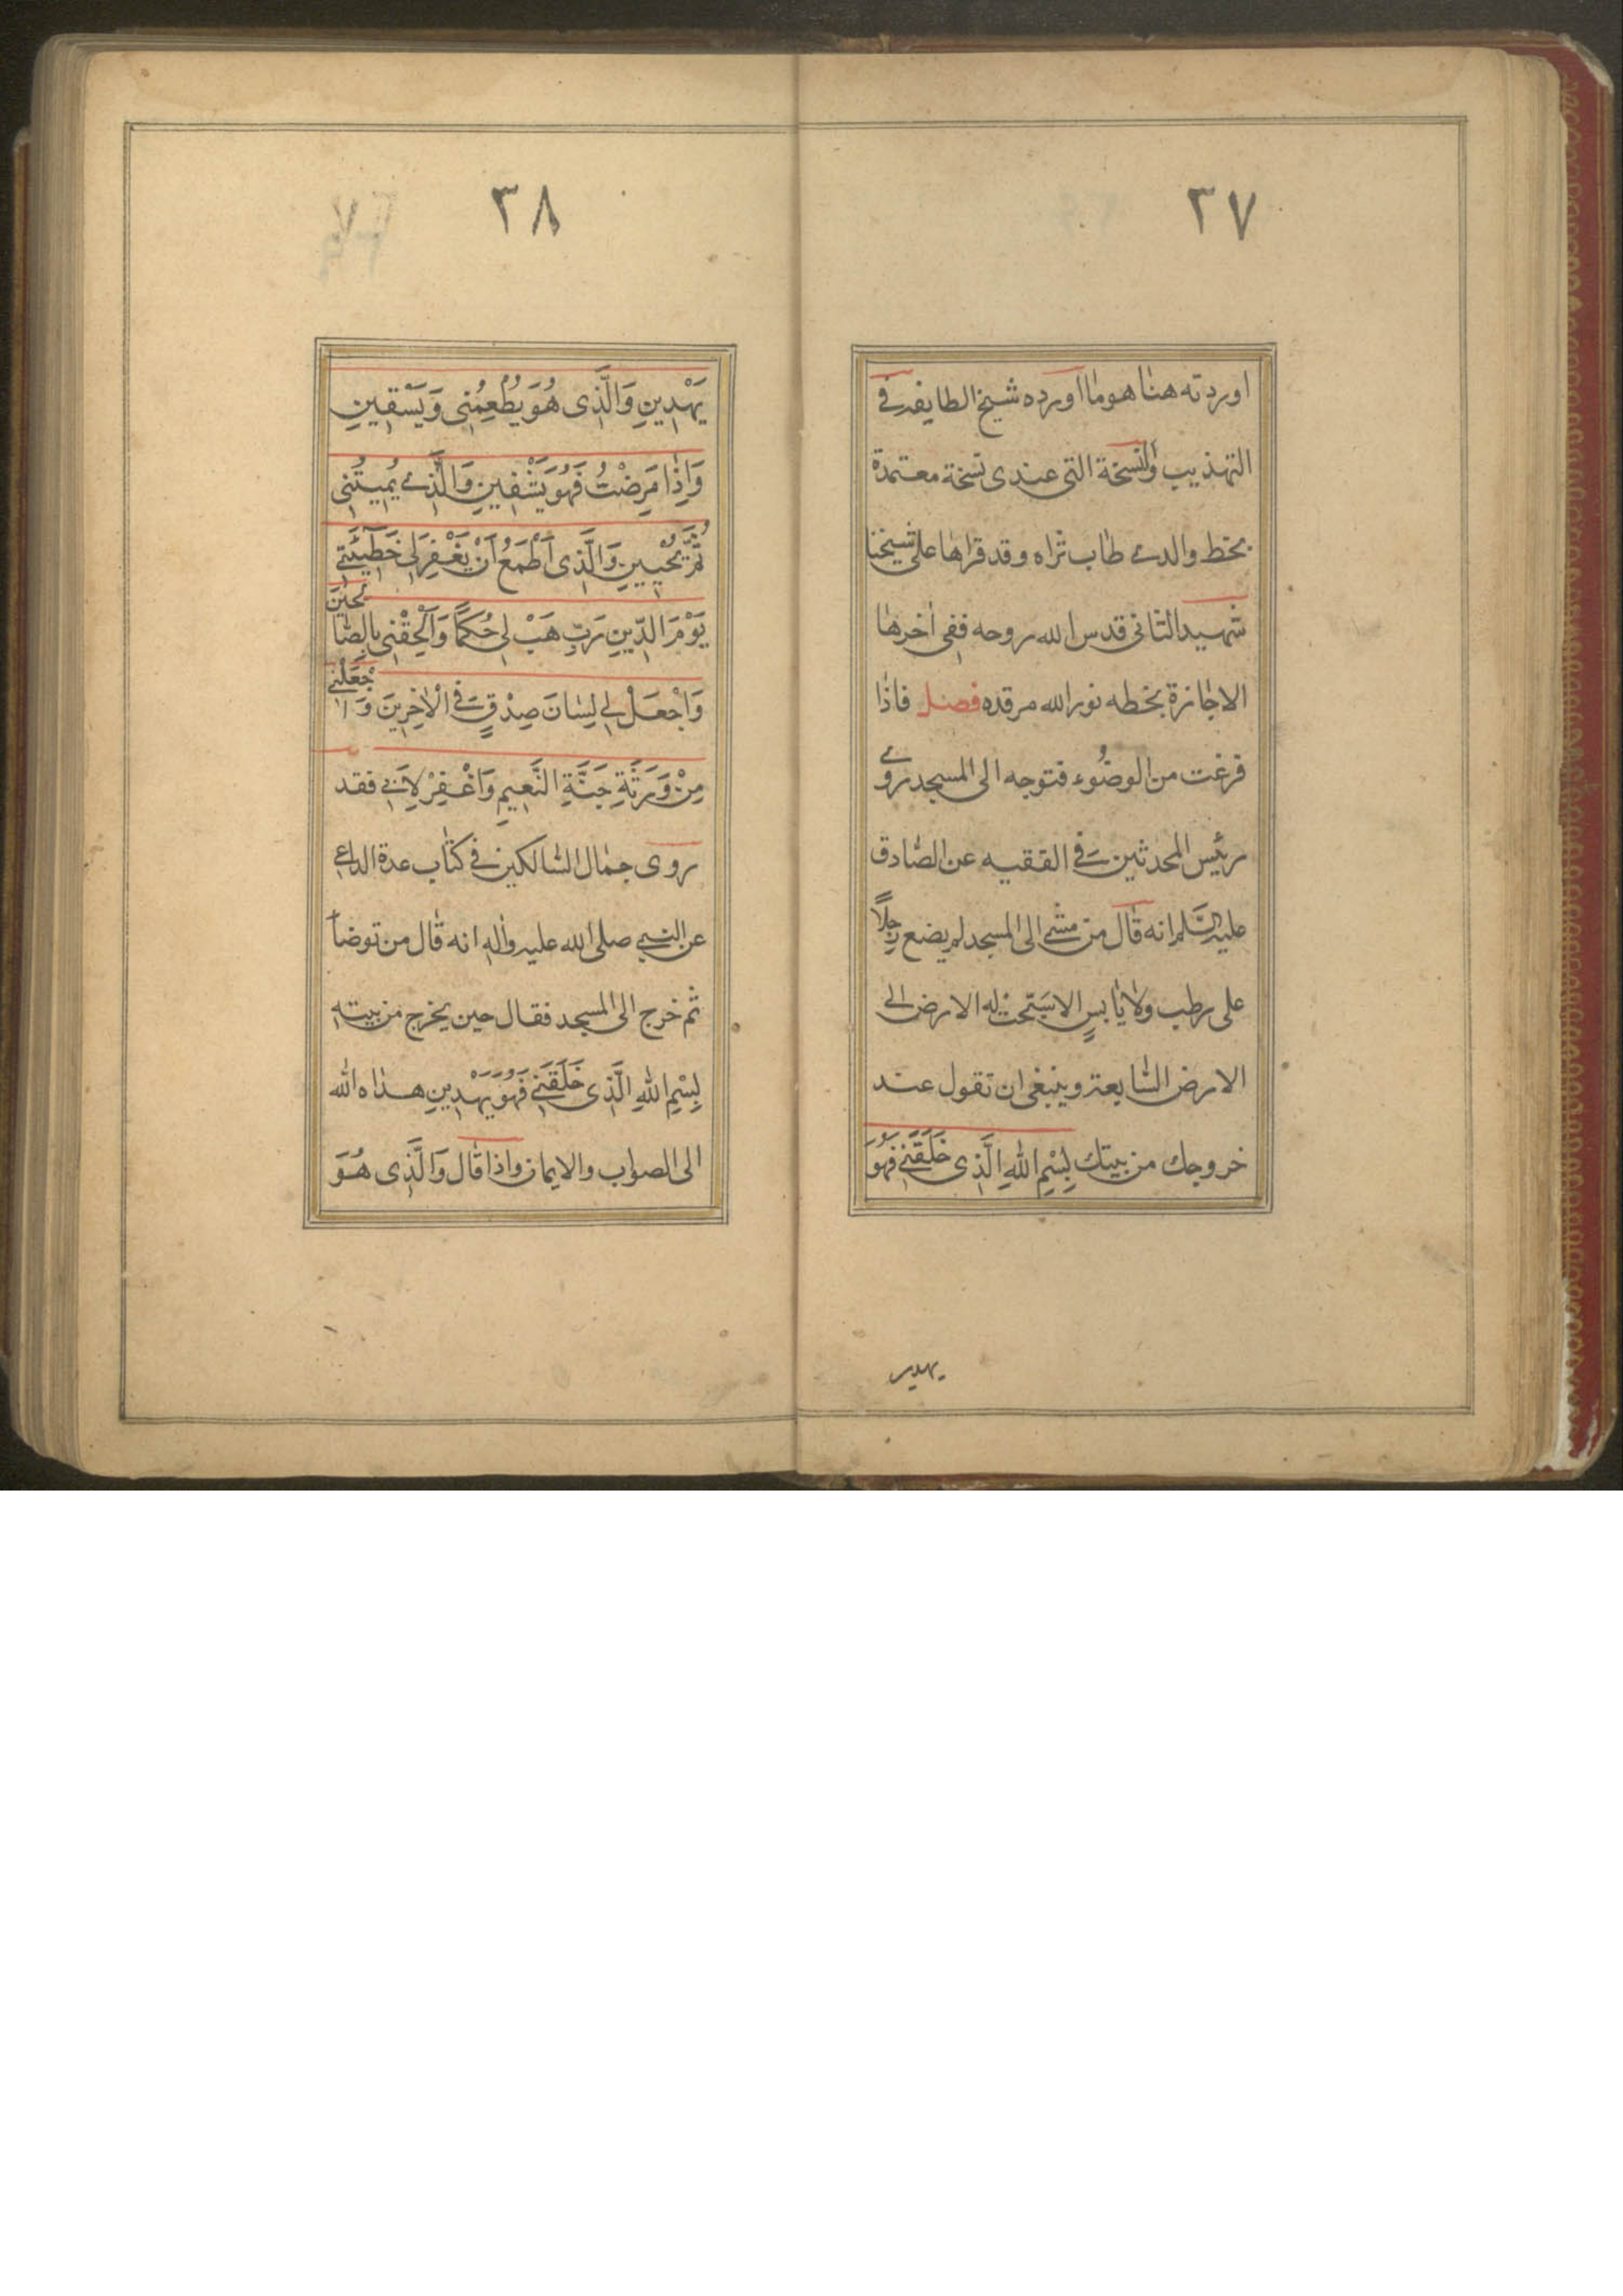 ٣٧
اوردته هنا هو ما اورده شيخ الطايفه في
التهذيب والنسخة التى عندى نسخة معتمدة
بخط والدى طاب ثراه وقد قراها على شيخنا
شهيد الثانى قدس الله روحه ففى اخرها
الاجازة بخطه نور الله مرقده فصل فاذا
فرغت من الوضوء فتوجه الى المسجد روى
رئيس المحدثين فى الفقيه عن الصادق
عليه السلم انه قال من مشى الى المسجد لم يضع رجلاً
على رطب ولا يابسٍ الا سَبّحت له الارض الى
الارض السابعة وينبغى ان تقول عند
خروجك من بيتك بِسْمِ اللهِ الَّذى خَلَقَنى فَهُوَ
يهدين
٣٨
يَهْدِينِ وَالَّذى هُوَ يُطْعِمُنى وَيَسْقِينِ
وَاِذا مَرِضْتُ فَهُوَ يَشْفِينِ وَالَّذى يُمِيتُنى
ثُمَّ يُحْيِينِ وَالَّذى اَطْمَعُ اَنْ يَغْفِرَ لى خَطِيٓئَتى
يَوْمَ الدِّينِ رَبِّ هَبْ لى حُكمًا وَاَلْحِقْنى بِالصّالحِينَ
وَاجْعَلْ لى لِسانَ صِدْقٍ فى الْاٰخِرِينَ وَاجْعَلْنى
مِنْ وَرَثَةِ جَنَّةِ النَّعِيمِ وَاغْفِرْ لِاَبى فقد
روى جمال السالكين فى كتاب عدة الداعى
عن النبى صلى الله عليه واله انه قال من توضأ
ثم خرج الى المسجد فقال حين يخرج من بيته
بِسْمِ اللهِ الَّذى خَلَقَنى فَهُوَ يَهْدِينِ هداه الله
الى الصواب والايمان واذا قال وَالَّذى هُوَ